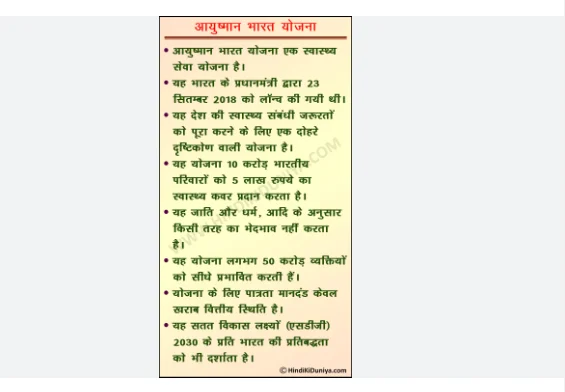 आयुष्मान भारत योजना
• आयुष्मान भारत योजना एक स्वास्थ्य
सेवा योजना है।
• यह भारत के प्रधानमंत्री द्वारा 23
सितम्बर 2018 को लॉन्च की गयी थी।
• यह देश की स्वास्थ्य संबंधी जरूरतों
को पूरा करने के लिए एक दोहरे
दृष्टिकोण वाली योजना है।
• यह योजना 10 करोड़ भारतीय
परिवारों को 5 लाख रुपये का
स्वास्थ्य कवर प्रदान करता है।
• यह जाति और धर्म, आदि के अनुसार
किसी तरह का भेदभाव नहीं करता
है।
• यह योजना लगभग 50 करोड़ व्यक्तियों
को सीधे प्रभावित करती हैं।
• योजना के लिए पात्रता मानदंड केवल
खराब वित्तीय स्थिति है।
• यह सतत विकास लक्ष्यों (एसडीजी)
2030 के प्रति भारत की प्रतिबद्धता
को भी दर्शाता है।
©HindiKiDuniya.com
WWW.HINDIKIDUNIYA.COM